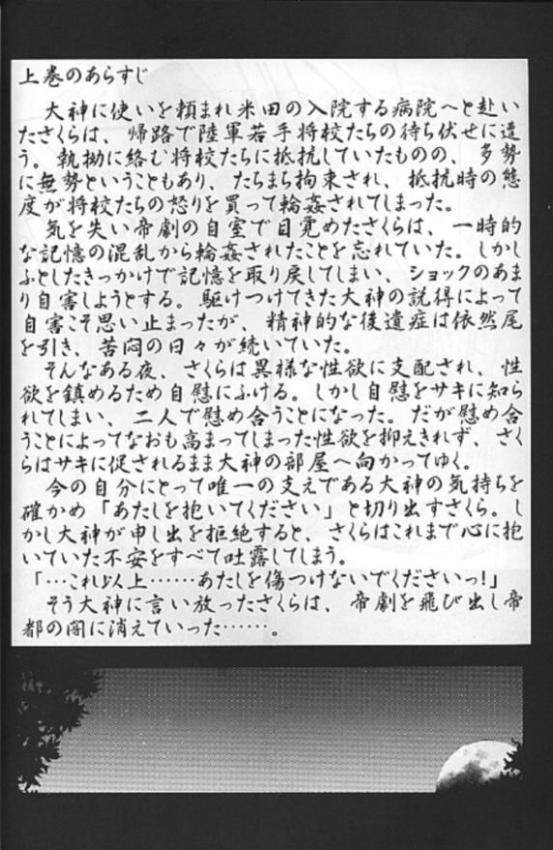 上巻のあらすじ
大神に使いを頼まれ米田の入院する病院へと赴い
たさくらは、帰路で陸軍若手将校たちの待ち伏せに遭
う。執拗に絡む将校たちに抵抗していたものの、多勢
に無勢ということもあり、たちまち拘束され、抵抗時の態
度が将校たちの怒りを買って輪姦されてしまった。
気を失い帝劇の自室で目覚めたさくらは、一時的
な記憶の混乱から輪姦されたことを忘れていた。しかし
ふとしたきっかけで記憶を取り戻してしまい、ショックのあま
り自害しようとする。駆けつけてきた大神の説得によって
自害こそ思い止まったが、精神的な後遺症は依然尾
を引き、苦悶の日々が続いていた。
そんなある夜、さくらは異様な性欲に支配され、性
欲を鎮めるため自慰にふける。しかし自慰をサキに知ら
れてしまい、二人で慰め合うことになった。だが慰め合
うことによってなおも高まってしまった性欲を抑えきれず、さく
らはサキに促されるまま大神の部屋へ向かってゆく。
今の自分にとって唯一の支えである大神の気持ちを
確かめ「あたしを抱いてください」と切り出すさくら。し
かし大神が申し出を拒絶すると、さくらはこれまで心に抱
いていた不安をすべて吐露してしまう。
「…これ以上……あたしを傷つけないでくださいっ!」
そう大神に言い放ったさくらは、帝劇を飛び出し帝
都の闇に消えていった……。